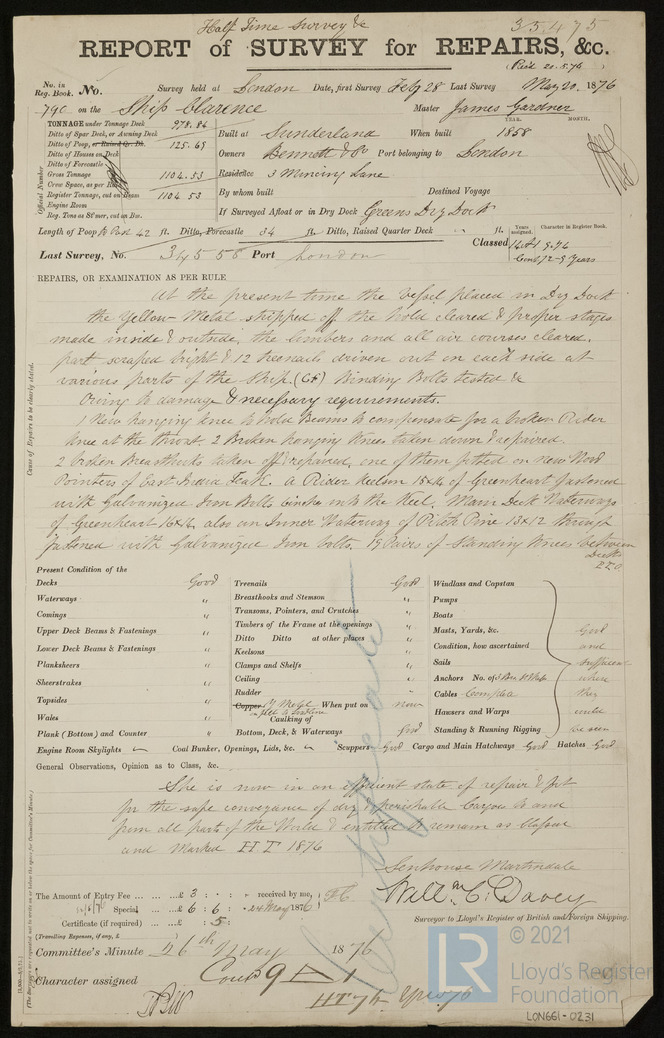 Half Time Survey &c
35475
REPORT of SURVEY for REPAIRS, &c.
(Recd 20.5.76)
No. in Reg. Book. No. Survey held at London Date, first Survey Feb 28 Last Survey May 20. 1876
790 on the Ship Clarence Master James Gardner
TONNAGE under Tonnage Deck 978.84
Ditto of Spar Deck, or Awning Deck
Ditto of Poop, or Raised Qr. Dk. 125.69
Ditto of Houses on Deck
Ditto of Forecastle
Gross Tonnage 1104.53
Crew Space, as per Rule
Register Tonnage, cut on Beam 1104.53
Engine Room
Reg. Tons as St'mer, cut on Bm.
Official Number
YEAR. MONTH.
Built at Sunderland When built 1858
Owners Bennett & Co Port belonging to London
Residence 3 Mincing Lane
By whom built Destined Voyage
If Surveyed Afloat or in Dry Dock Greens Dry Dock
Length of Poop 42 ft. Ditto, Forecastle 34 ft. Ditto, Raised Quarter Deck ft.
Years assigned. Character in Register Book.
Classed 14 A1 5.74
Cont 72-9 Years
Last Survey, No. 34558 Port London
REPAIRS, OR EXAMINATION AS PER RULE
At the present time the Vessel placed in Dry Dock
the Yellow-Metal stripped off the hold cleared & proper stages
made inside & outside, the limbers and all air courses cleared,
part scraped bright & 12 treenails driven out on each side at
various parts of the Ship. Binding Bolts tested &c
Owing to damage & necessary requirements.
1 New hanging knee to hold Beams to compensate for a broken Rider
knee at the throat. 2 Broken hanging Knees taken down & repaired.
2 broken Breasthooks taken off & repaired, one of them fitted on new Wood
Pointers of East India Teak. A Rider Keelson 15x14 of Greenheart fastened
with Galvanized Iron Bolts into the Keel. Main Deck Waterways
of Greenheart 16x14, also an Inner Waterway of Pitch Pine 13x12 through
fastened with Galvanized Iron bolts. 19 Pairs of Standing Knees between
Decks
P.T.O
Cause of Repairs to be clearly stated.
Present Condition of the
Decks Good
Waterways "
Comings "
Upper Deck Beams & Fastenings "
Lower Deck Beams & Fastenings "
Planksheers "
Sheerstrakes "
Topsides "
Wales "
Plank (Bottom) and Counter "
Treenails Good
Breasthooks and Stemson "
Transoms, Pointers, and Crutches "
Timbers of the Frame at the openings "
Ditto Ditto at other places "
Keelsons "
Clamps and Shelfs "
Ceiling "
Rudder "
Copper Y Metal When put on now
Caulking of
Bottom, Deck, & Waterways Good
Windlass and Capstan
Pumps
Boats
Masts, Yards, &c. Good
Condition, how ascertained and
Sails sufficient
Anchors No. of where
Cables Complete this
Hawsers and Warps could
Standing & Running Rigging be seen
Engine Room Skylights Coal Bunker, Openings, Lids, &c. Scuppers Good Cargo and Main Hatchways Good Hatches Good
General Observations, Opinion as to Class, &c.
She is now in an efficient state of repair & fit
for the safe conveyance of dry & perishable Cargoes to and
from all parts of the World & entitled to remain as Classed
and Marked H T 1876
Certificate
Senhouse Martindale
Will. m C. Davey
Surveyor to Lloyd's Register of British and Foreign Shipping.
The Amount of Entry Fee £ 3 : - : - received by me,
Special £ 6 : 6 : - 24 May 1876
Certificate (if required) : 5 :
(Travelling Expenses, if any, £
Committee's Minute 26th May 1876
Character assigned Contd 9 A 1
HT 76
© 2021
LR
Lloyd's Register
Foundation
LON661-0231